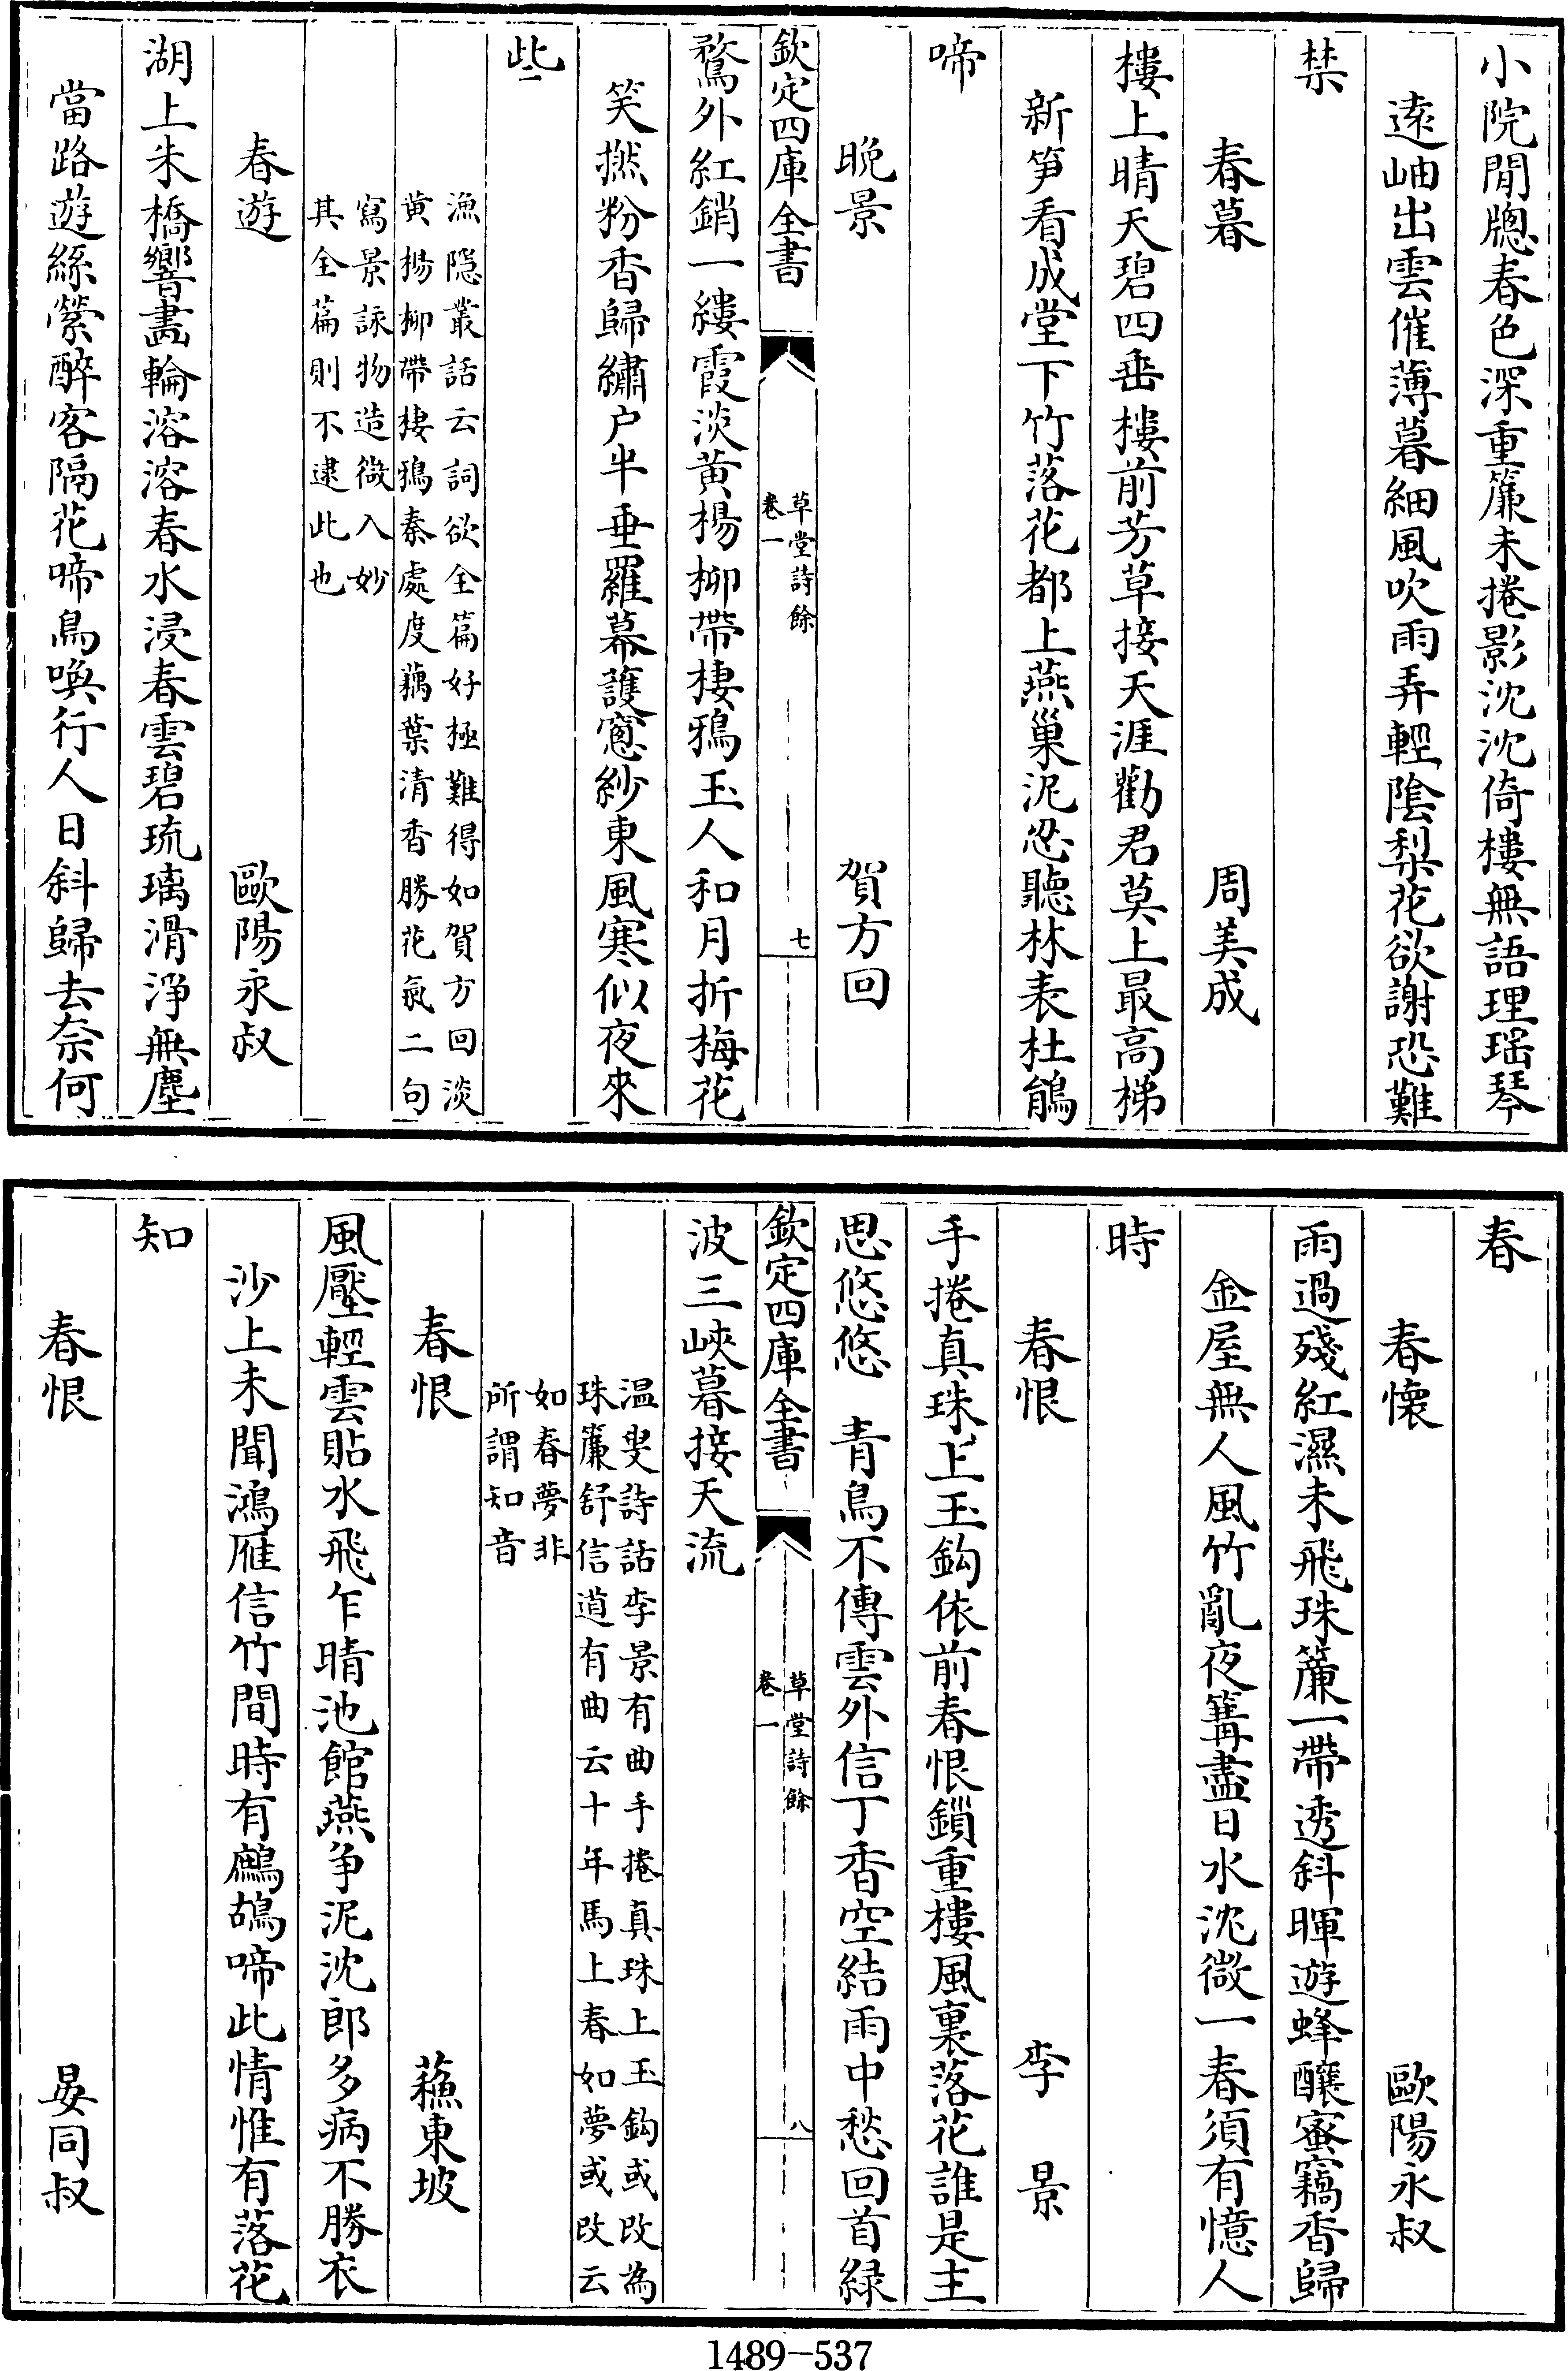 小院閒牕春色深重簾未捲影沈沈倚樓無語理瑶琴
遠岫出雲催薄暮細風吹雨弄輕陰梨花欲謝恐難
禁
春暮 周美成
樓上晴天碧四垂樓前芳草接天涯勸君莫上最高梯
新笋看成堂下竹落花都上燕巢泥忍聽林表杜鵑
啼
晚景 賀方回
欽定四庫全書
草堂詩餘
卷一
七
鶩外紅銷一縷霞淡黄楊柳帶棲鴉玉人和月折梅花
笑撚粉香歸繡户半垂羅幕護窻紗東風寒似夜來
些
漁隠叢話云詞欲全篇好極難得如賀方回淡
黄楊柳帶棲鴉秦處度藕葉清香勝花氣二句
寫景詠物造微入妙
其全篇則不逮此也
春遊 歐陽永叔
湖上朱橋響畫輪溶溶春水浸春雲碧琉璃滑浄無塵
當路遊絲縈醉客隔花啼鳥喚行人日斜歸去奈何
春
春懐 歐陽永叔
雨過殘紅濕未飛珠簾一帶透斜暉遊蜂釀蜜竊香歸
金屋無人風竹亂夜篝盡日水沈微一春須有憶人
時
春恨 李景
手捲真珠上玉鈎依前春恨鎻重樓風裏落花誰是主
思悠悠 青鳥不傳雲外信丁香空結雨中愁回首緑
欽定四庫全書
草堂詩餘
卷一
八
波三峽暮接天流
温叟詩話李景有曲手捲真珠上玉鈎或改為
珠簾舒信道有曲云十年馬上春如夢或改云
如春夢非
所謂知音
春恨 蘓東坡
風壓輕雲貼水飛乍晴池館燕争泥沈郎多病不勝衣
沙上未聞鴻雁信竹間時有鷓鴣啼此情惟有落花
知
春恨 晏同叔
1489-537